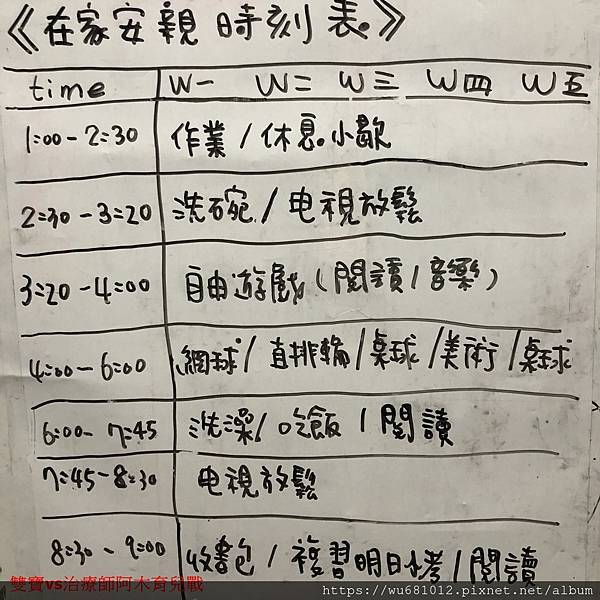 《在家安親 時刻表。》
time W一 W二 W三 W四 W五
1:00-2:30 作業/休息。小歇
2:30-3:20 洗碗/电視放鬆
3:20-4:00 自由遊戲(閱讀/音樂)
4:00-6:00 網球/直排輪/桌球/美術/桌球
6:00-7:45 洗澡/吃飯/閱讀
7:45-8:30 电視放鬆
8:30-9:00 收書包/複習明日考/閱讀
雙寶vs治療師阿木育兒戰
https://wu681012.pixnet.net/album